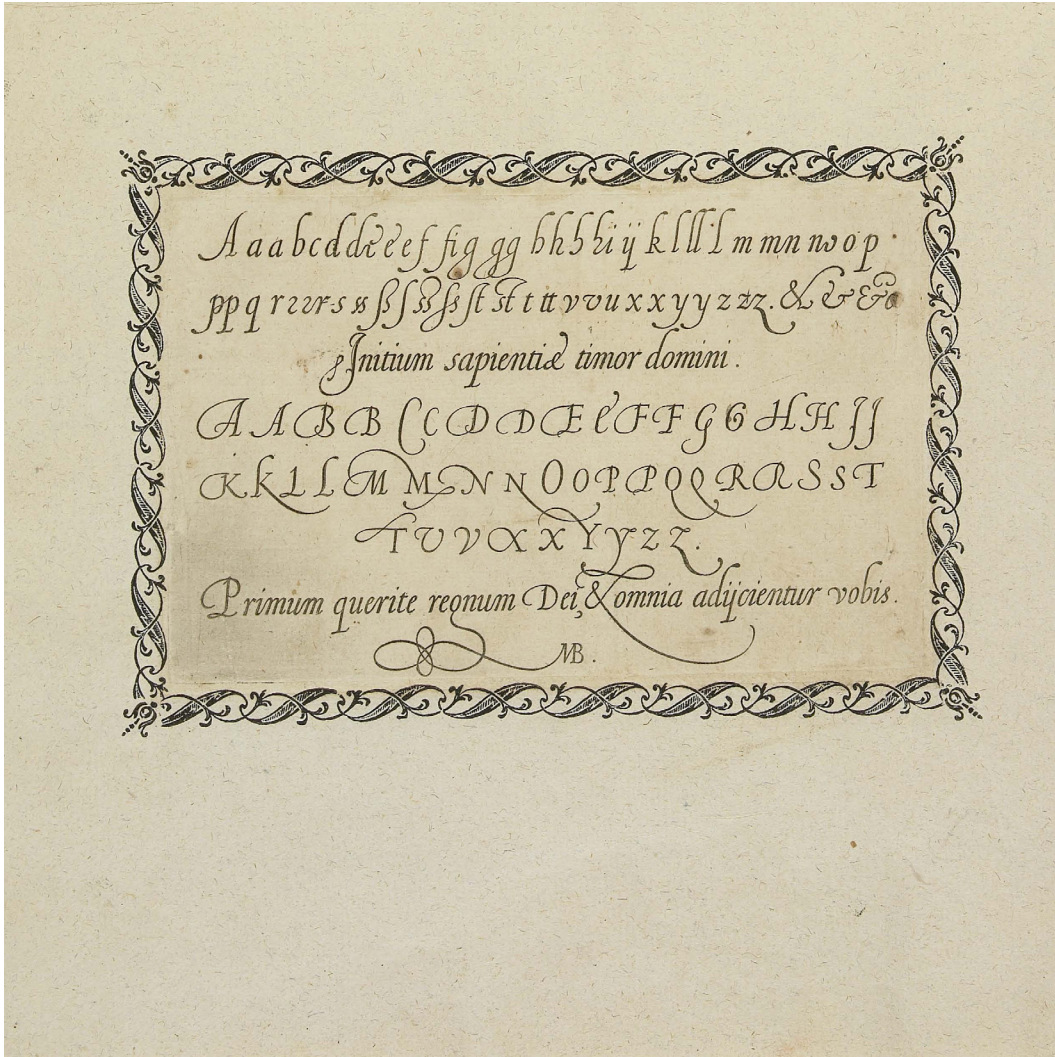 A a a b c d d e e e f ff fi g gg b h h h i ij k l l l l m m n n o o p
p p q r r r r s ss ß ſ ss ſs ſt st t tt v v u x x y y z z z. & & &
Initium sapientiæ timor domini.
A A B B C C D D E E F F G G H H I J
K K L L M M N N O O P P Q Q R R S S T
T V V X X Y Y Z Z.
Primum querite regnum Dei, & omnia adijcientur vobis.
MB.